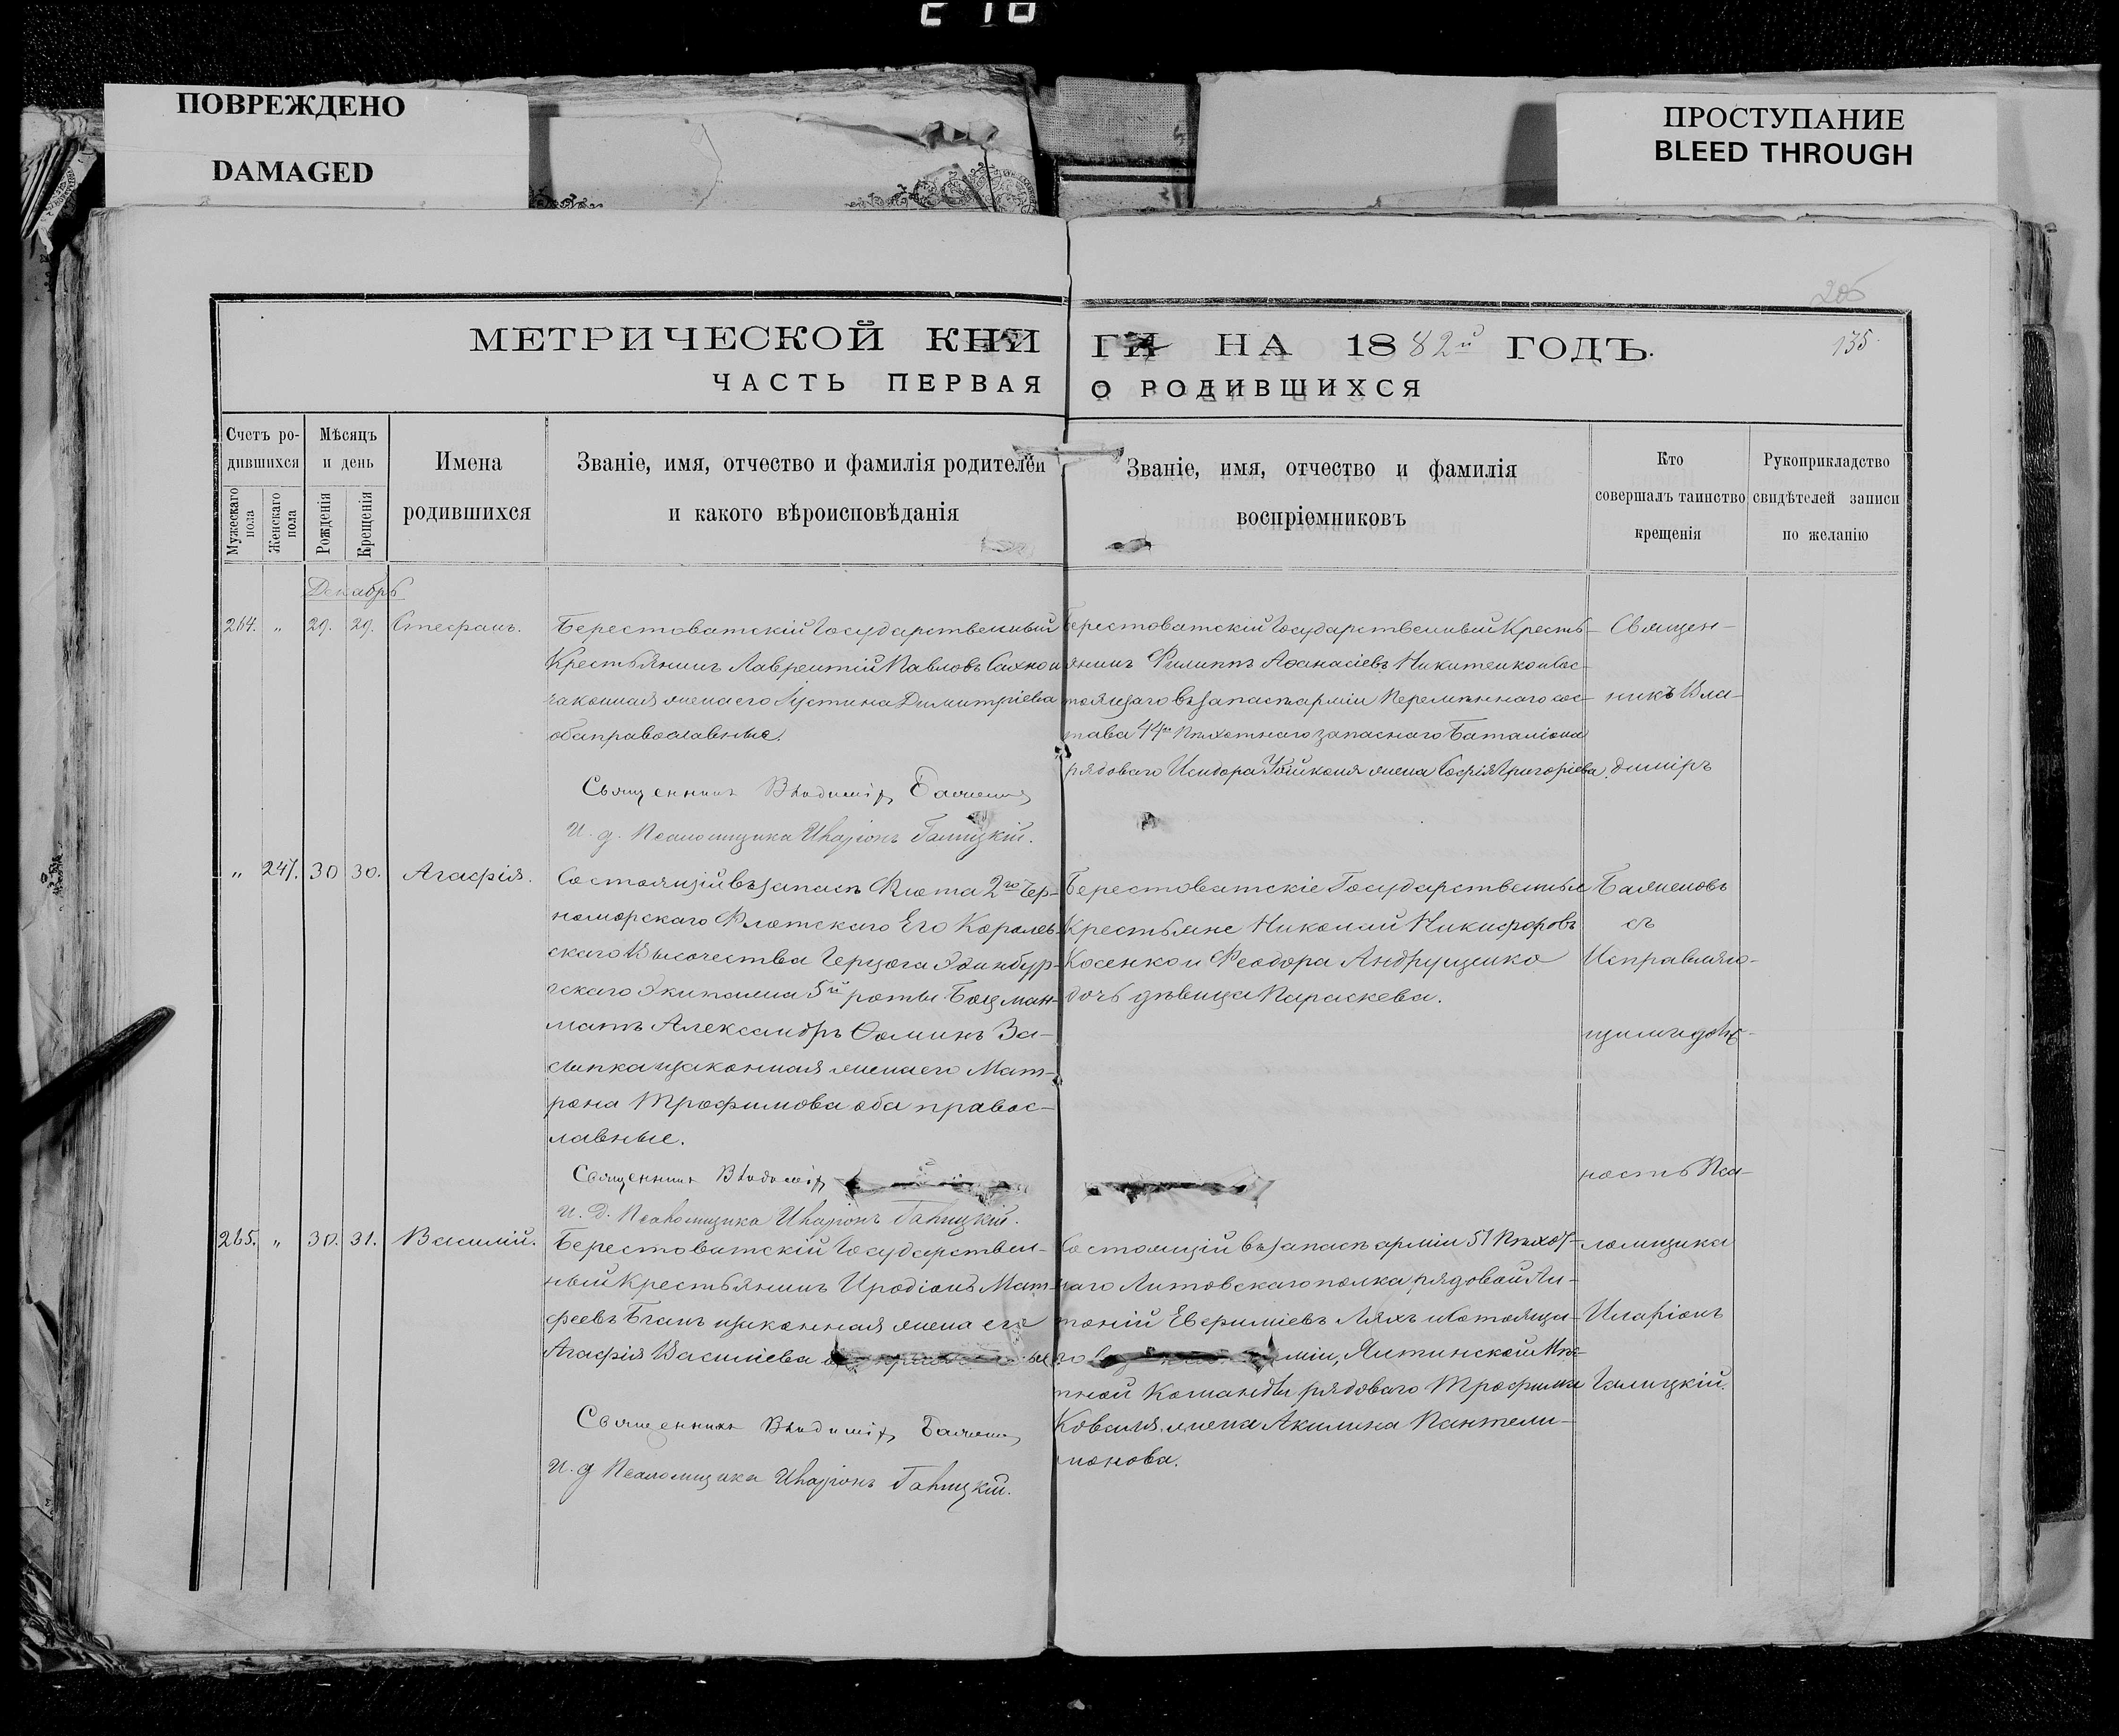 ПОВРЕЖДЕНО
DAMAGED
ПРОСТУПАНИЕ
BLEED THROUGH
МЕТРИЧЕСКОЙ КНИ
ГИ НА 1882й ГОДЪ.
135.
ЧАСТЬ ПЕРВАЯ
О РОДИВШИХСЯ
Счетъ ро-
дившихся
Мужескаго пола
Женскаго пола
Мѣсяцъ
и день
Рожденія
Крещенія
Имена
родившихся
Званіе, имя, отчество и фамилія родителей
и какого вѣроисповѣданія
Званіе, имя, отчество и фамилія
воспріемниковъ
Кто
совершалъ таинство
крещенія
Рукоприкладство
свидѣтелей записи
по желанію
Декабрь
264. „ 29. 29. Стефанъ.
Берестоватскій Государственный
Крестьянинъ Лаврентій Павловъ Сахно и
законная жена его Іустина Димитріева
оба православные.
Священникъ Владиміръ Баженовъ
И. д. Псаломщика Иларіонъ Галицкій.
Берестоватскій Государственный Кресть-
янинъ Филиппъ Аѳанасіевъ Никитенко и Сос-
тоящаго въ запасѣ арміи Перемѣннаго сос-
тава 44го Пѣхотнаго запаснаго Баталіона
рядоваго Исидора жена Софія Григоріева.
Священ-
никъ Вла-
диміръ
„ 247. 30 30. Агафія.
Состоящій въ запасѣ Флота 2го Чер-
номорскаго Флотскаго Его Королев-
скаго Высочества Герцога Эдинбур-
гскаго Экипажа 5й роты Боцман-
матъ Александръ Ѳоминъ За-
слипка и законная жена его Мат-
рона Трофимова оба правос-
лавные.
Священникъ Владиміръ
И. д. Псаломщика Иларіонъ Галицкій.
Берестоватскіе Государственные
Крестьяне Николай Никифоровъ
Косенко и Феодора Андрущенко
дочь дѣвица Параскева.
Баженовъ
съ
Исправляю-
щимъ долж-
ность Пса-
265. „ 30. 31. Василій.
Берестоватскій Государствен-
ный Крестьянинъ Иродіонъ Мат-
феевъ Бганъ и законная жена его
Агафія Василіева
Священникъ Владиміръ Баженовъ
И. д Псаломщика Иларіонъ Галицкій.
Состоящій въ запасѣ арміи 51 Пѣхот-
наго Литовскаго полка рядовой Ан-
тоній Евфиміевъ Ляхъ и Состояща-
го міи, Ялтинской Мѣс-
тной Команды рядоваго Трофима
Коваля жена Акилина Пантели-
монова.
ломщика
Иларіонъ
Галицкій.